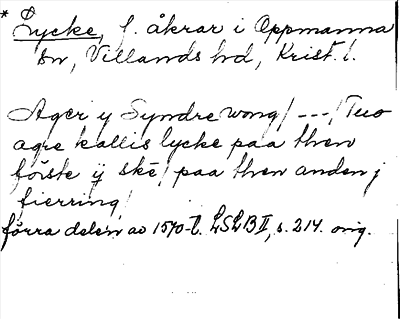 * Lycke, f. åkrar i Oppmanna
sn, Villands hd, Krist. l.
Ager y Syndre wong/ ---/ Tuo
agre kallis lycke paa then
förste ij ske/ paa then anden j
fierring/
förra delen av 1570-t. LSLB II, s. 214. orig.